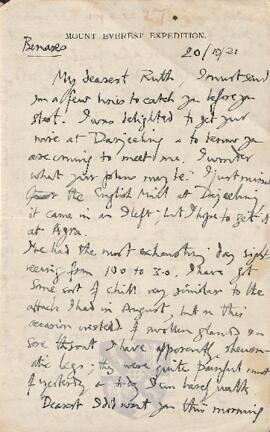 MOUNT EVEREST EXPEDITION.
Benares
20/10/21
My dearest Ruth I must send
you a few lines to catch you before you
start. I was delighted to get your
wire at Darjeeling & to know you
are coming to meet me. I wonder
what your plans may be. I just missed
the English Mail at Darjeeling
it came in as I left; but I hope to get it
at Agra.
We had the most exhausting day sight
seeing from 10 to 3.0. I have got
some sort of chill very similar to the
attack I had in August, but on this
occasion instead of swollen glands or
sore throat I have apparently rheum-
atic legs; they were quite painful most
of yesterday & to day I can barely walk
Dearest I did want you this morning